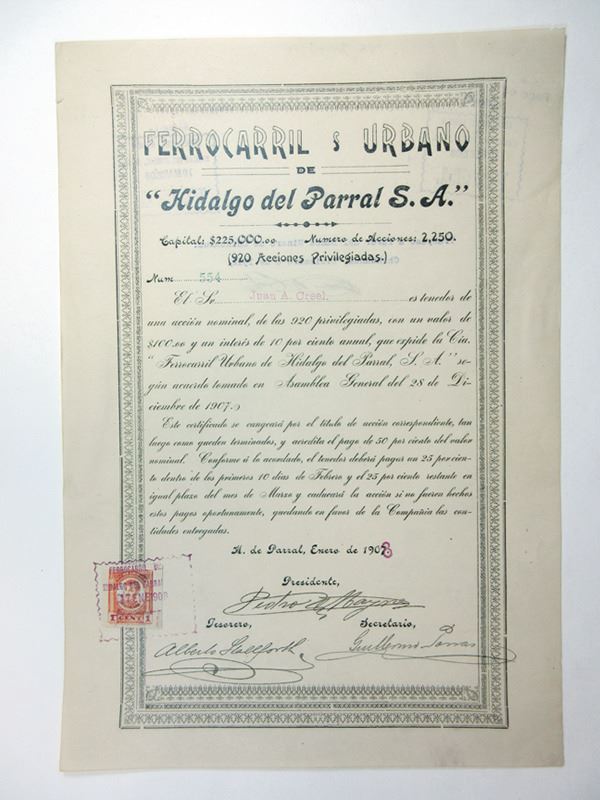 FERROCARRIL s URBANO
DE
"Hidalgo del Parral S. A."
Capital: $225,000.00 Numero de Acciones: 2,250.
(920 Acciones Privilegiadas.)
Num 554
El Sr Juan A. Creel. es tenedor de
una acción nominal, de las 920 privilegiadas, con un valor de
$100.00 y un interés de 10 por ciento anual, que expide la Cía.
"Ferrocarril Urbano de Hidalgo del Parral, S. A." se-
gún acuerdo tomado en Asamblea General del 28 de Di-
ciembre de 1907.
Este certificado se cangeará por el título de acción correspondiente, tan
luego como queden terminados, y acredita el pago de 50 por ciento del valor
nominal. Conforme á lo acordado, el tenedor deberá pagar un 25 por cien-
to dentro de los primeros 10 días de Febrero y el 25 por ciento restante en
igual plazo del mes de Marzo y caducará la acción si no fueren hechos
estos pagos oportunamente, quedando en favor de la Compañía las can-
tidades entregadas.
H. de Parral, Enero de 1908
Presidente,
Tesorero, Secretario,
Alberto Stallforth Guillermo Porras
FERROCARRIL
HIDALGO DEL PARRAL
ENE 1908
1 CENT 1